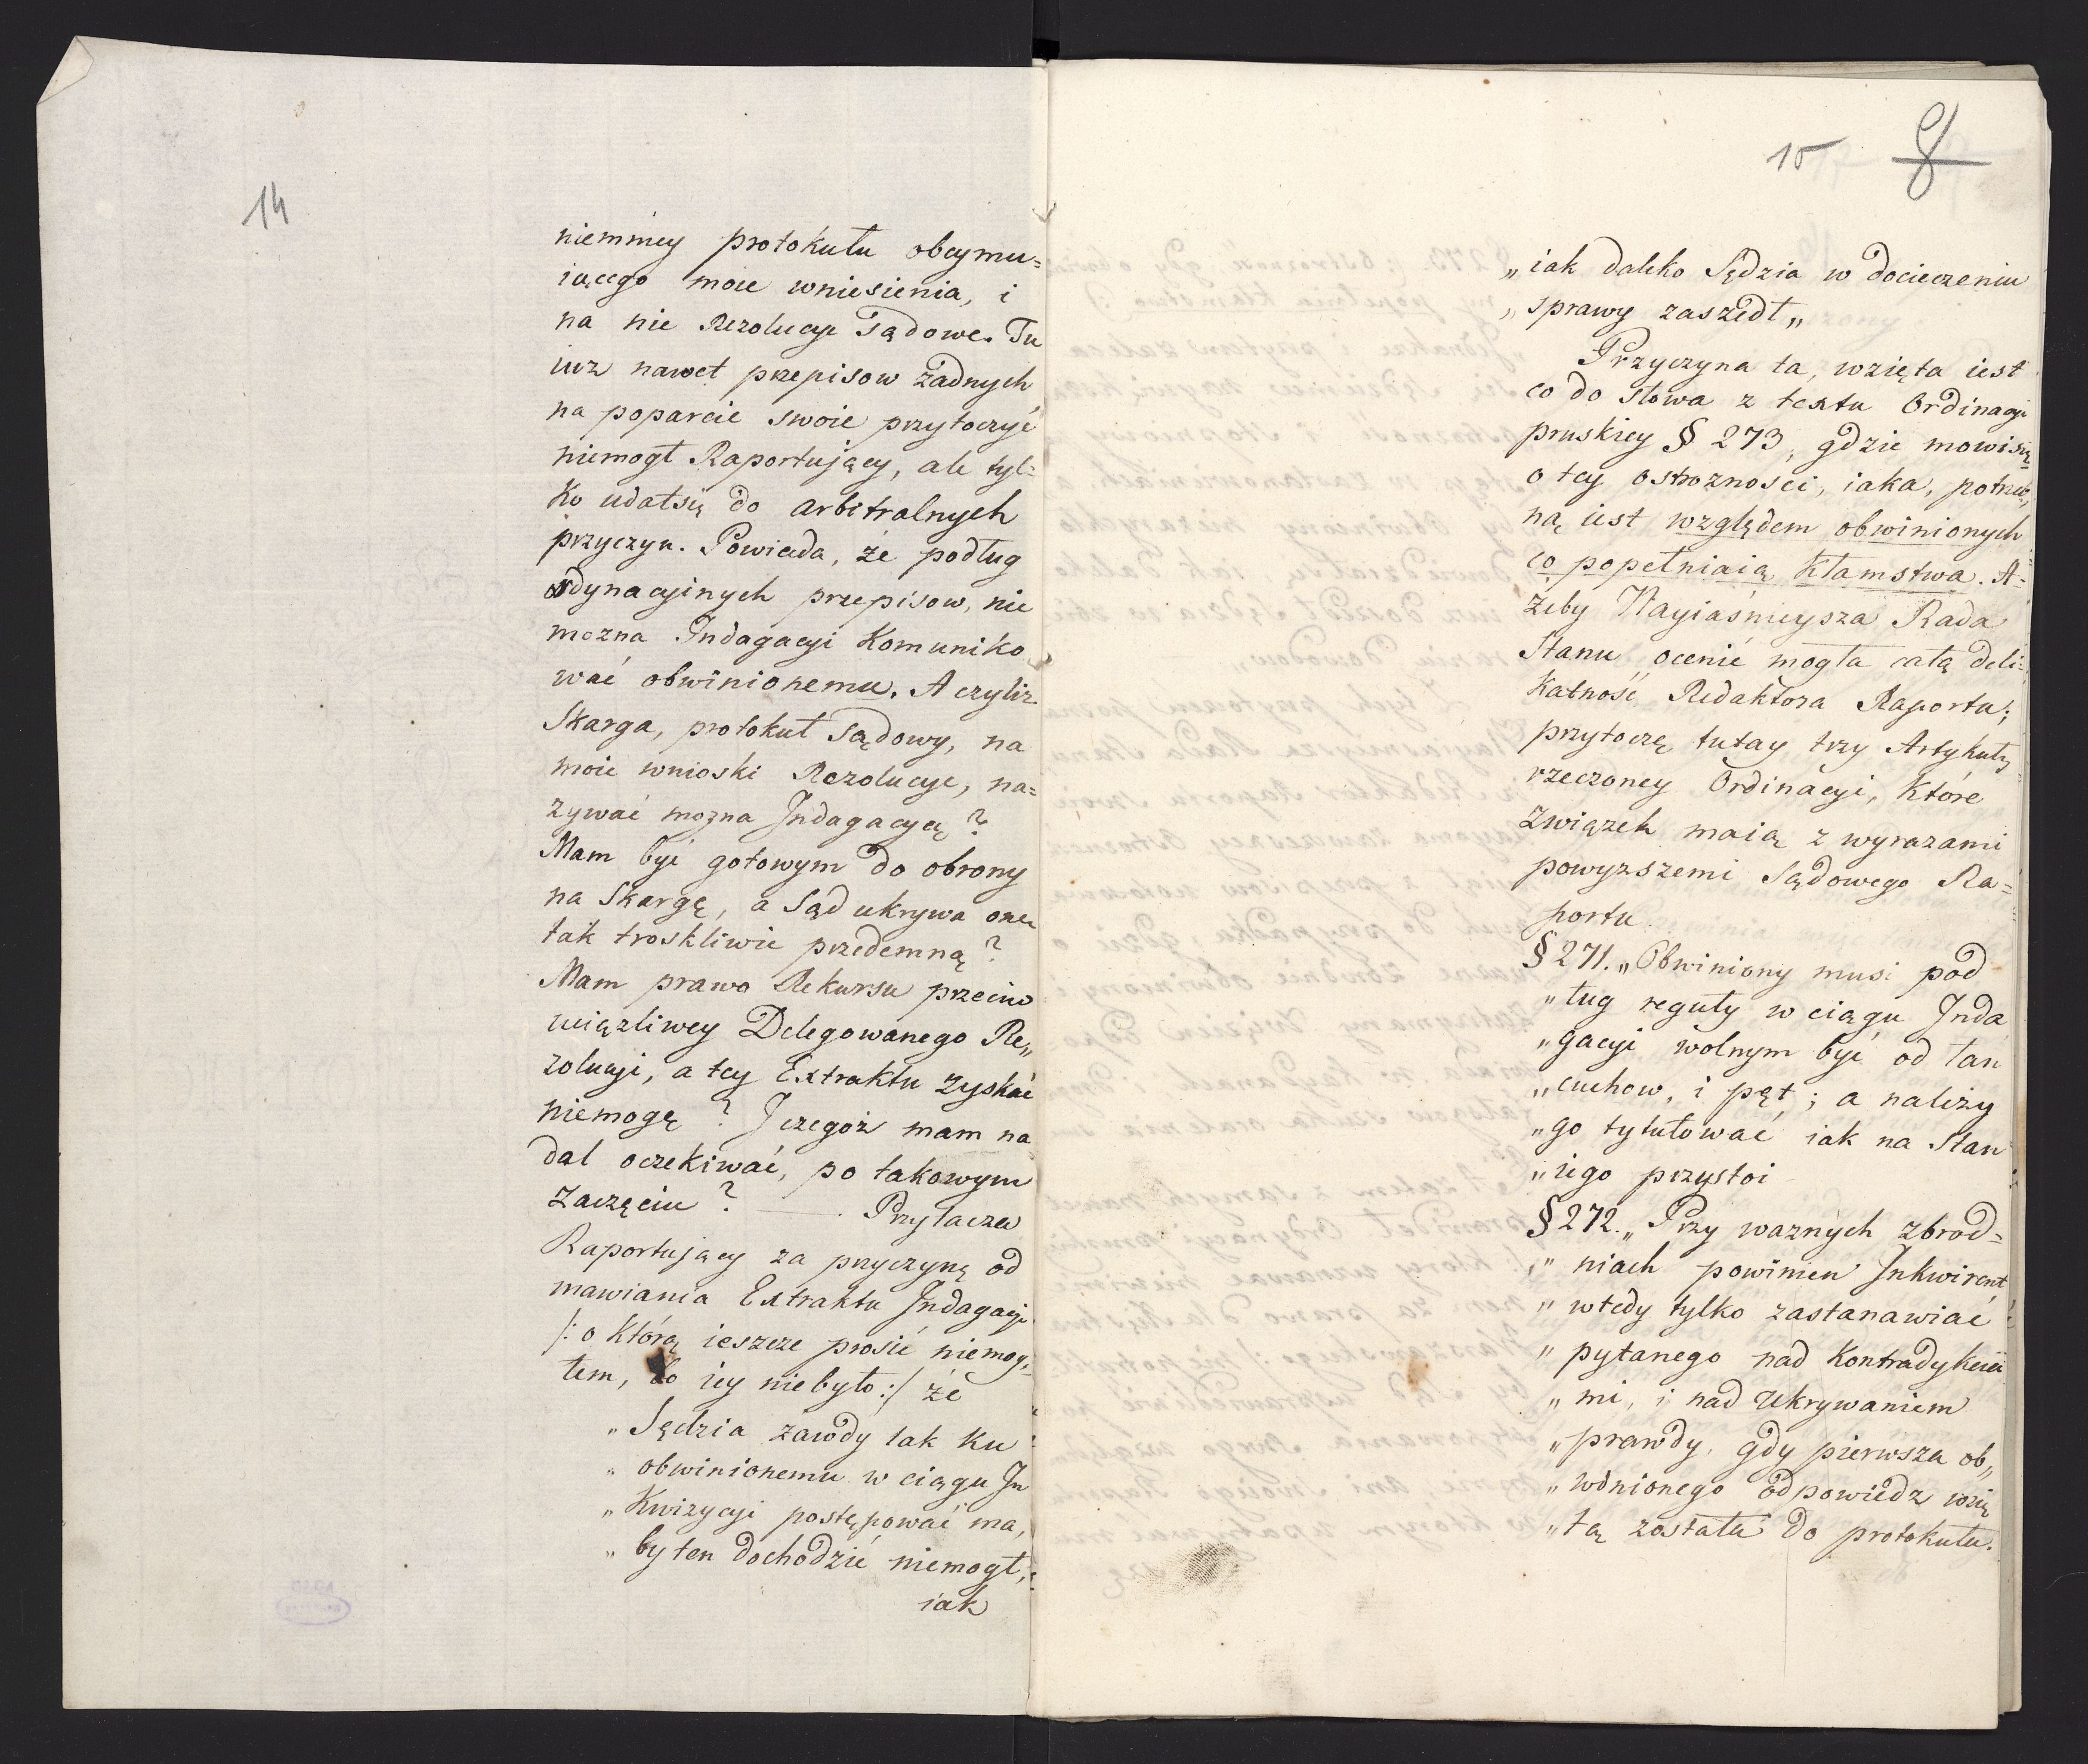 14
niemniey protokułu obeymu=
iącego moie wniesienia, i
na nie Rezolucye Sądowe. Tu
iuz nawet przepisow żadnych
na poparcie swoie przytoczyć
niemogł Raportujący, ale tyl=
ko udałsię do arbitralnych
przyczyn. Powiada, że podług
ordynacyinych przepisow, nie
mozna Indagacyi Komuniko
wać obwinionemu. A czyliz
Skarga, protokuł Sądowy, na
moie wnioski Rezolucye, na=
zywać mozna Indagacyą?
Mam być gotowym do obrony
na Skargę, a Sąd ukrywa one
tak troskliwie przedemną?
Mam prawo Rekursu przeciw
uciązliwey Delegowanego Re„
zolucyi, a tey Extraktu zyskać
niemogę? I czegoż mam na
dal oczekiwać, po takowym
Zaczęciu? — Przytacza
Raportujący za przyczynę od
mawiania Extraktu Indagacyi
/: o którą ieszcze prosić niemog=
łem, bo iey niebyło :/ że
„Sędzia zawdy tak ku
„obwinionemu w ciągu In
„kwizycyi postępować ma,
„by ten dochodzić niemogł,
iak
15 8
„iak daleko Sędzia w docieczeniu
„sprawy zaszedł„
Przyczyna ta, wzięta iest
co do słowa z textu Ordinacyi
pruskiey § 273, gdzie mowi się
o tey ostroznosci, iaka, potrzeb„
ną iest względem obwinionych
co popełniaią Kłamstwa. A=
żeby Nayiaśnieysza Rada
Stanu ocenić mogła całą deli=
katność Redaktora Raportu;
przytoczę tutay trzy Artykuły
rzeczoney Ordinacyi, które
związek maią z wyrazami
powyzszemi Sądowego Ra=
portu
§ 271. „Obwiniony musi pod
„ług reguły w ciągu Inda
„gacyi wolnym być od łań
„cuchow, i pęt; a należy
„go tytułować iak na Stan
„iego przystoi
§ 272. „Przy waznych zbrod=
„niach powinien Inkwirent
„wtedy tylko zastanawiać
„pytanego nad Kontradykcia
„mi, i nad ukrywaniem
„prawdy, gdy pierwsza ob„
„winionego odpowiedz wzię
„tą została do protokułu.